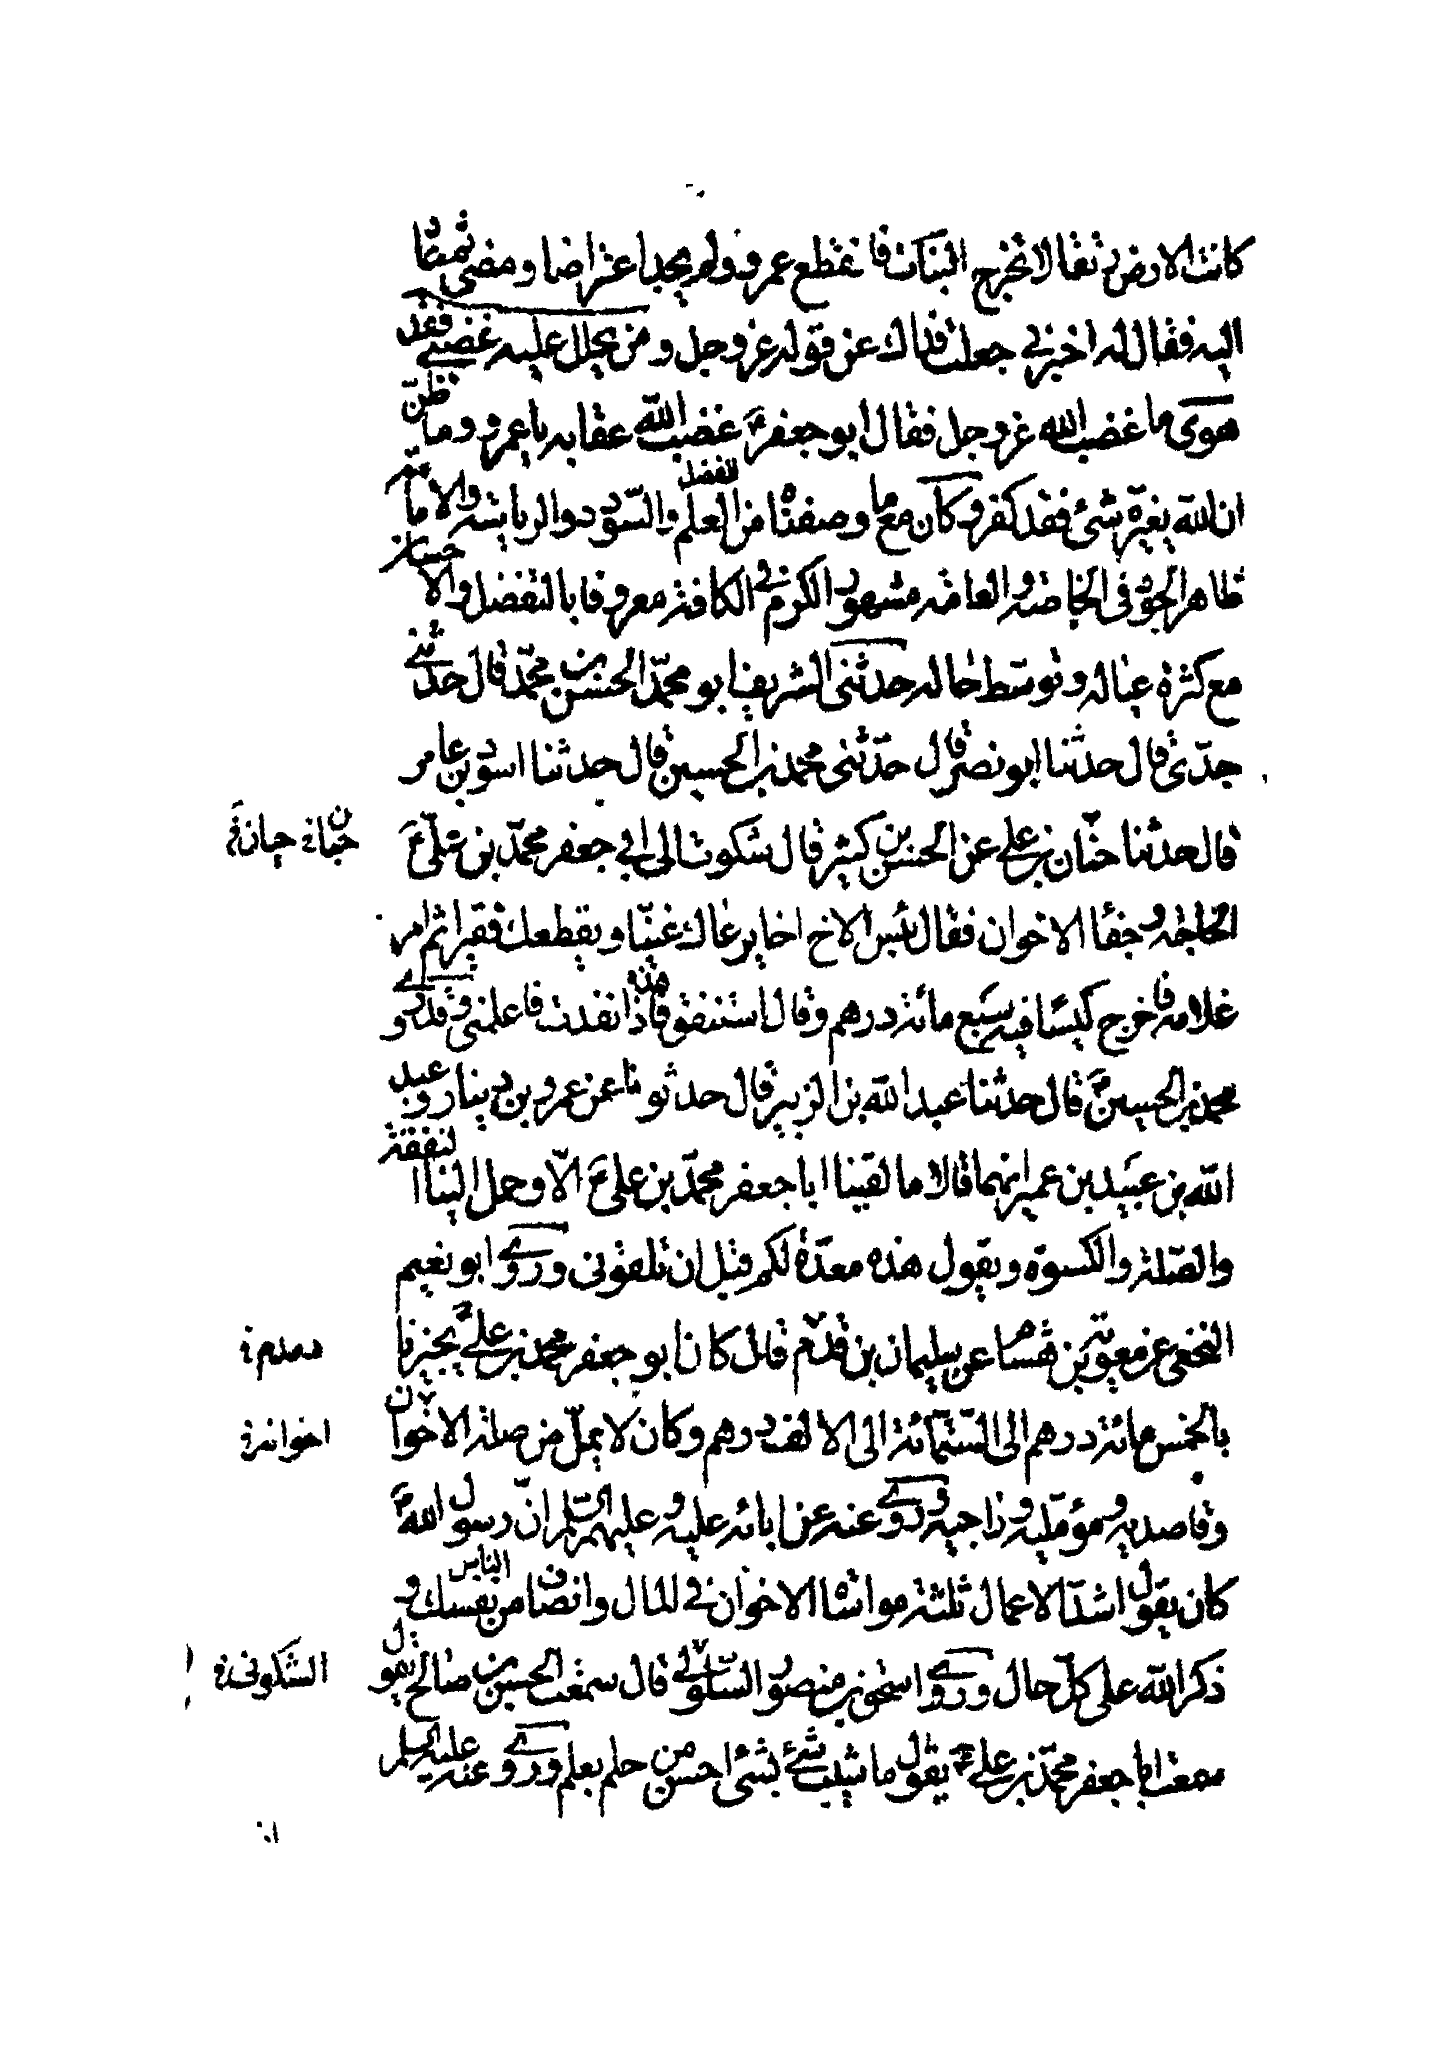 كانت الارض رتقا لا تخرج النبات فانقطع عمرو ولم يجد اعتراضا ومضى ثم عاد
اليه فقال له اخبرني جعلت فداك عن قوله عز وجل ومن يحلل عليه غضبي فقد
هوى ما غضب الله عز وجل فقال ابو جعفر ع غضب الله عقابه يا عمرو وما ظن
ان الله يغيره شئ فقد كفر وكان مع ما وصفناه من الفضل العلم والسودد والرياسة والامامة
ظاهر الجود في الخاصة والعامة مشهور الكرم في الكافة معروفا بالتفضل والاحسان
مع كثرة عياله وتوسط حاله حدثني الشريف ابو محمد الحسن بن محمد قال حدثني
جدي قال حدثنا ابو نصر قال حدثني محمد بن الحسين قال حدثنا اسود بن عامر
قال حدثنا حنان بن علي عن الحسن بن كثير قال شكوت الى ابي جعفر محمد بن علي ع
حبان
الحاجة وجفا الاخوان فقال بئس الاخ اخا يرعاك غنيا ويقطعك فقيرا ثم امر
غلامه فاخرج كيسا فيه سبع مائة درهم وقال استنفق هذه فاذا نفدت فاعلمني وقد روى
محمد بن الحسين قال حدثنا عبد الله بن الزبير قال حدثونا عن عمرو بن دينار وعبد
الله بن عبيد بن عمير انهما قالا ما لقينا ابا جعفر محمد بن علي ع الا وحمل الينا النفقة
والصلة والكسوة ويقول هذه معدة لكم قبل ان تلقوني وروى ابو نعيم
النخعي عن معوية بن هشام عن سليمان بن قدم قال كان ابو جعفر محمد بن علي ع يجيزنا
بالخمس مائة درهم الى الستمائة الى الالف درهم وكان لا يمل من صلة الاخوان
اخوانه
وقاصديه ومؤمليه وراجيه وروى عنه عن ابائه عليه وعليهم السلم ان رسول الله ص
كان يقول اشد الاعمال ثلثة مواساة الاخوان في المال وانصاف الناس من نفسك و
ذكر الله على كل حال وروى اسحق بن منصور السلولي قال سمعت الحسن بن صالح يقول
السكوني
سمعت ابا جعفر محمد بن علي ع يقول ما شيب شئ بشئ احسن من حلم بعلم وروى عنه عليه السلم